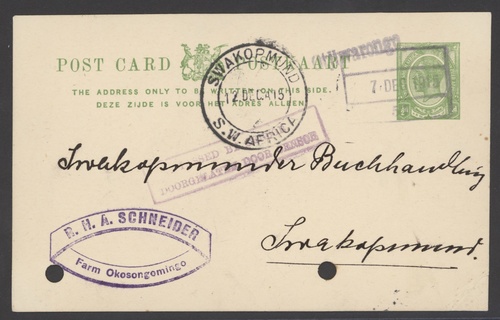 POST CARD POSKAART
THE ADDRESS ONLY TO BE WRITTEN ON THIS SIDE.
DEZE ZIJDE IS VOOR HET ADRES ALLEEN.
SWAKOPMUND
12 DEC 15
S.W. AFRICA
7 DEC
Swakopmunder Buchhandlung
Swakopmund.
R. H. A. SCHNEIDER
Farm Okosongomingo